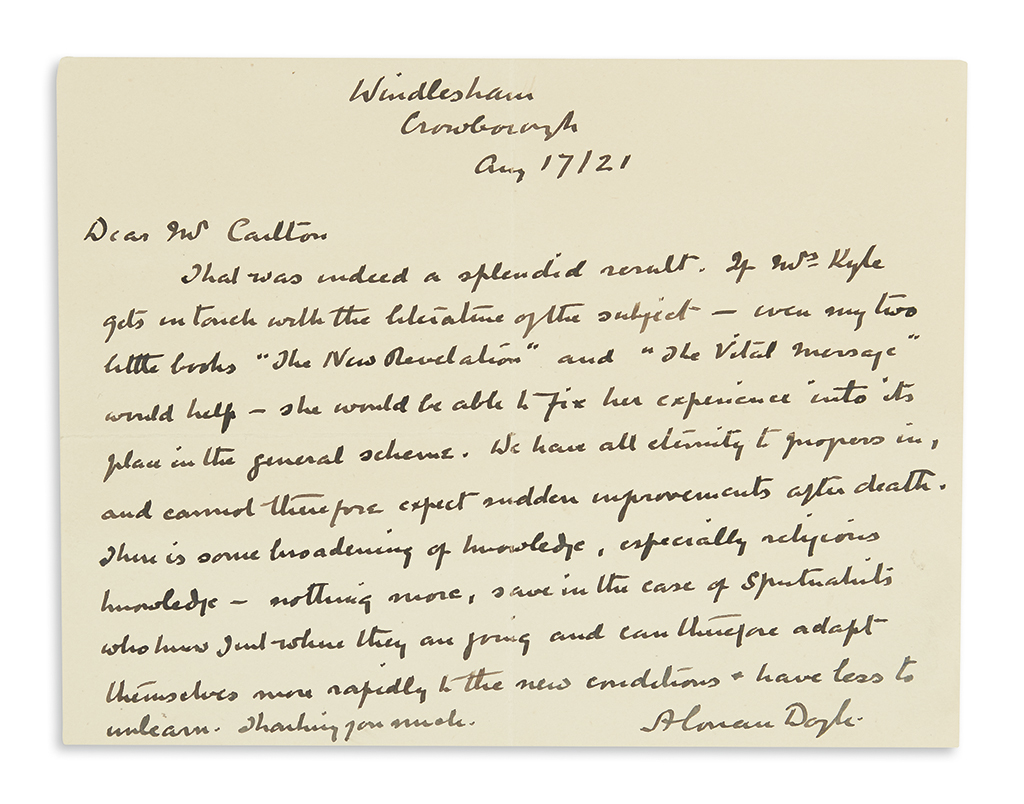 Windlesham
Crowborough
Aug 17/21
Dear Mr Carlton
That was indeed a splendid result. If Mrs Kyle
gets in touch with the literature of the subject – even my two
little books "The New Revelation" and "The Vital Message"
would help – she would be able to fix her experience into its
place in the general scheme. We have all eternity to progress in,
and cannot therefore expect sudden improvements after death.
There is some broadening of knowledge, especially religious
knowledge – nothing more, save in the case of Spiritualists
who know just where they are going and can therefore adapt
themselves more rapidly to the new conditions + have less to
unlearn. Thanking you much.
A Conan Doyle.